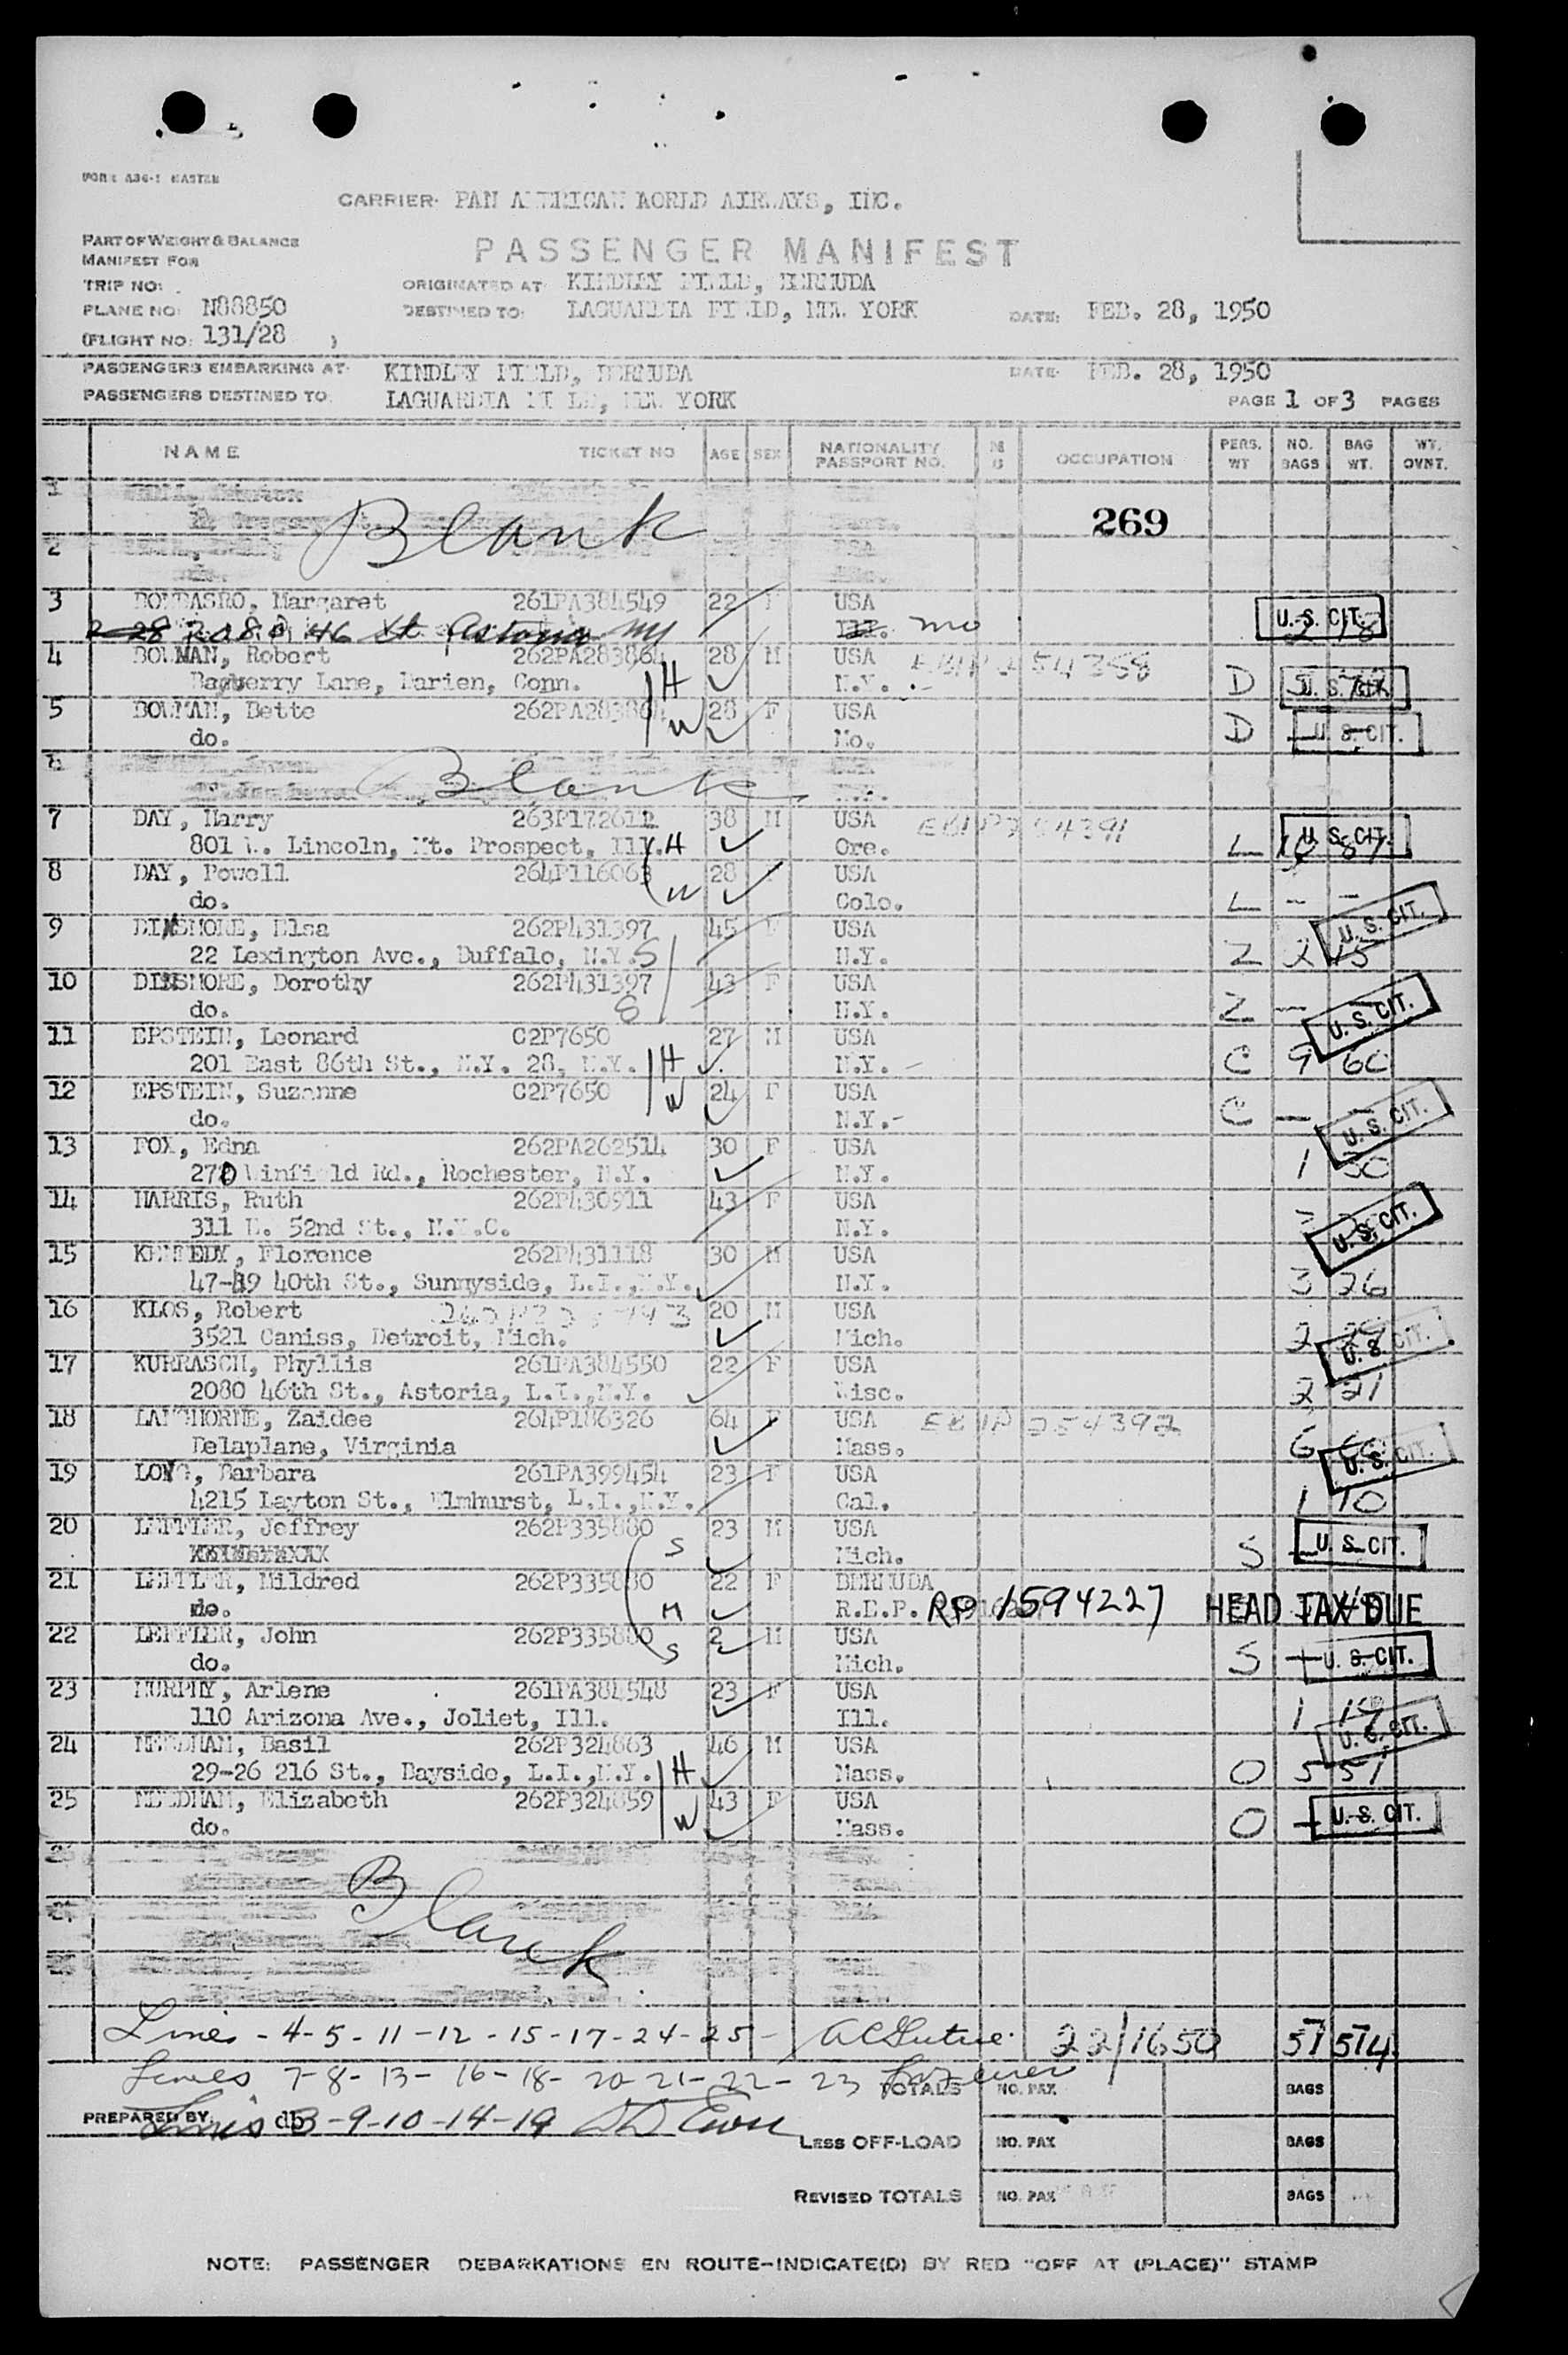 FORM A36-1 MASTER
CARRIER: PAN AMERICAN WORLD AIRWAYS, INC.
PART OF WEIGHT & BALANCE
MANIFEST FOR
PASSENGER MANIFEST
TRIP NO:
ORIGINATED AT: KINDLEY FIELD, BERMUDA
PLANE NO: N88850
DESTINED TO: LAGUARDIA FIELD, NEW YORK DATE: FEB. 28, 1950
(FLIGHT NO: 131/28 )
PASSENGERS EMBARKING AT: KINDLEY FIELD, BERMUDA DATE: FEB. 28, 1950
PASSENGERS DESTINED TO: LAGUARDIA FIELD, NEW YORK PAGE 1 OF 3 PAGES
NAME TICKET NO AGE SEX NATIONALITY PASSPORT NO. OCCUPATION PERS. WT NO. BAGS BAG WT. WT. OVNT.
1
Blank 269
2
3 Margaret 261PA384549 22 F USA U.S. CIT.
46 St Astoria NY Mo
4 BOWMAN, Robert 262PA283864 28 M USA
Bayberry Lane, Darien, Conn. H N.Y. D U.S. CIT.
5 BOWMAN, Bette 262PA283864 28 F USA
do. W Mo. D U.S. CIT.
6 Blank
7 DAY, Harry 263P172612 38 M USA U.S. CIT.
801 W. Lincoln, Mt. Prospect, Ill. H Ore. L
8 DAY, Powell 264P116063 28 F USA
do. W Colo. L - -
9 DINSMORE, Elsa 262P431397 45 F USA U.S. CIT.
22 Lexington Ave., Buffalo, N.Y. S N.Y. Z 2
10 DINSMORE, Dorothy 262P431397 43 F USA
do. S N.Y. Z - U.S. CIT.
11 EPSTEIN, Leonard C2P7650 27 M USA
201 East 86th St., N.Y. 28, N.Y. H N.Y. C 9 60
12 EPSTEIN, Suzanne C2P7650 24 F USA
do. W N.Y. C - U.S. CIT.
13 FOX, Edna 262PA262514 30 F USA
270 Winfield Rd., Rochester, N.Y. N.Y. 1 30
14 HARRIS, Ruth 262P430911 43 F USA
311 E. 52nd St., N.Y.C. N.Y. U.S. CIT.
15 KENNEDY, Florence 262P431118 30 M USA
47-49 40th St., Sunnyside, L.I., N.Y. N.Y. 3 26
16 KLOS, Robert 20 M USA
3521 Caniss, Detroit, Mich. Mich. 2 U.S. CIT.
17 KURRASCH, Phyllis 261PA384550 22 F USA
2080 46th St., Astoria, L.I., N.Y. Wisc. 2 21
18 LANGHORNE, Zaidee 264P186326 64 F USA
Delaplane, Virginia Mass. 6 U.S. CIT.
19 LONG, Barbara 261PA399454 23 F USA
4215 Layton St., Elmhurst, L.I., N.Y. Cal. 1 10
20 LEFFLER, Jeffrey 262P335880 23 M USA
S Mich. S - U.S. CIT.
21 LEFFLER, Mildred 262P335880 22 F BERMUDA
do. M R.E.P. RP 1594227 HEAD TAX DUE
22 LEFFLER, John 262P335880 2 M USA
do. S Mich. S U.S. CIT.
23 MURPHY, Arlene 261PA384548 23 F USA
110 Arizona Ave., Joliet, Ill. Ill. 1
24 NEEDHAM, Basil 262P324863 46 M USA U.S. CIT.
29-26 216 St., Bayside, L.I., N.Y. H Mass. O 5 51
25 NEEDHAM, Elizabeth 262P324859 43 F USA
do. W Mass. O - U.S. CIT.
Blank
Lines - 4-5-11-12-15-17-24-25- 22/1650 57 514
Lines 7-8-13-16-18-20-21-22-23 TOTALS NO. PAX BAGS
PREPARED BY: db Lines 3-9-10-14-19
LESS OFF-LOAD NO. PAX BAGS
REVISED TOTALS NO. PAX BAGS
NOTE: PASSENGER DEBARKATIONS EN ROUTE-INDICATE(D) BY RED "OFF AT (PLACE)" STAMP